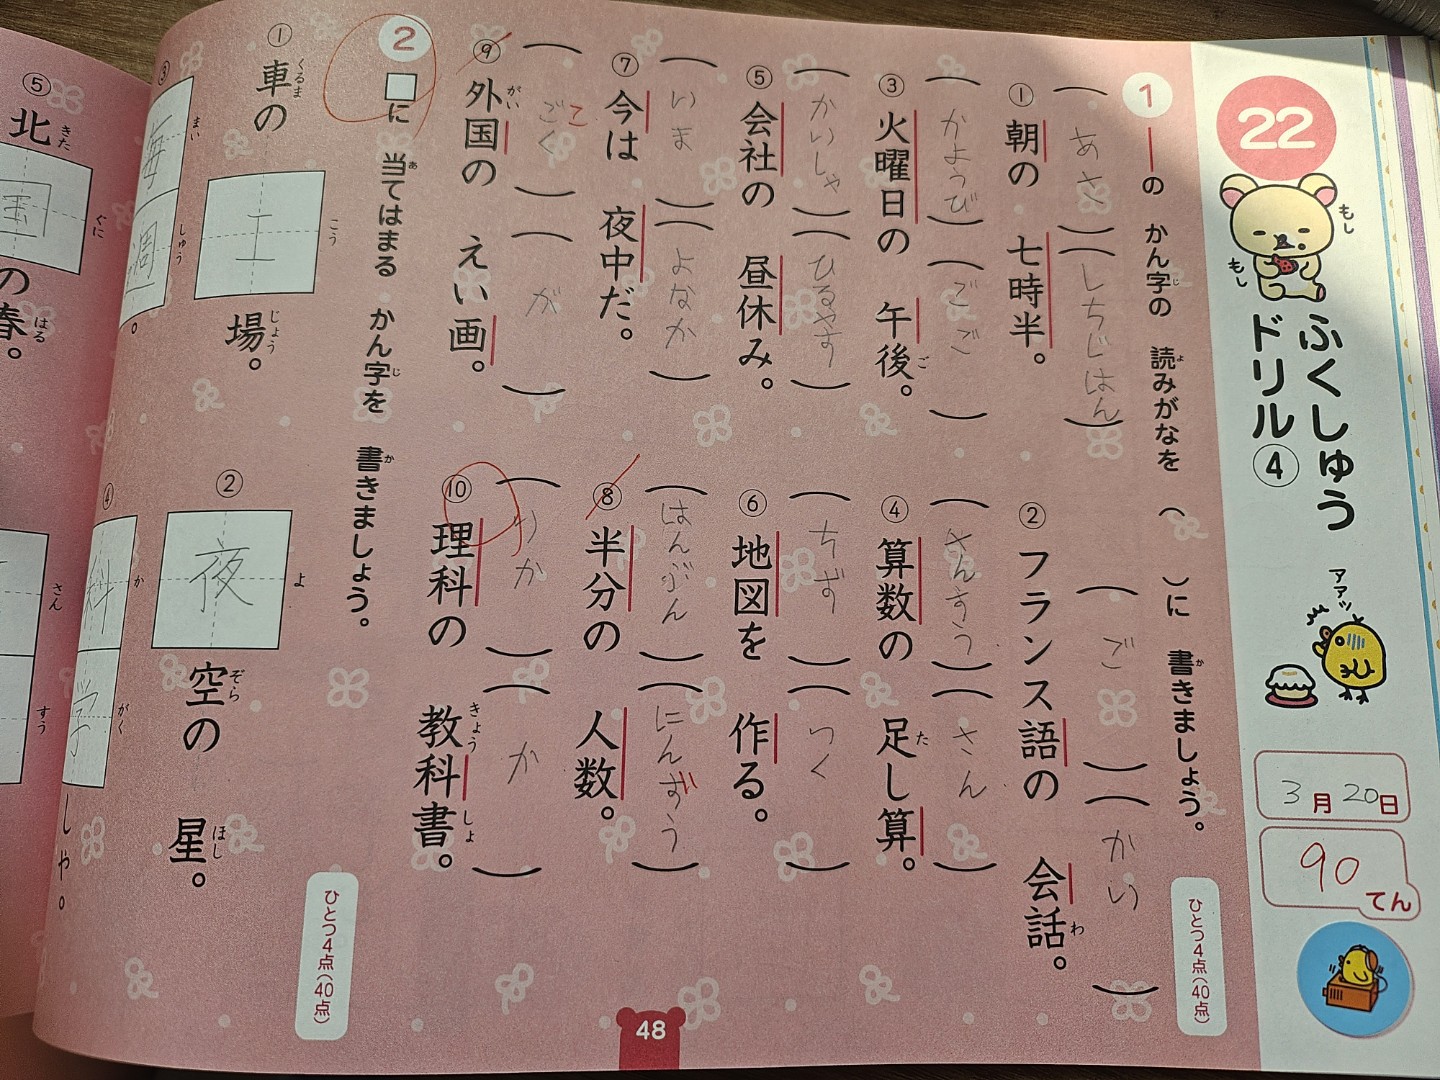 22
ふくしゅう
ドリル④
もし
もし
アアッ
3月20日
90てん
1 ーの かん字の 読みがなを （ ）に 書きましょう。
じ
よ
か
ひとつ4点(40点)
① 朝の 七時半。
あさ
しちじはん
② フランス語の 会話。
ご
かい
わ
③ 火曜日の 午後。
かようび
ご
ご
ご
④ 算数の 足し算。
さんすう
さん
た
⑤ 会社の 昼休み。
かいしゃ
ひるやす
⑥ 地図を 作る。
ちず
つく
⑦ 今は 夜中だ。
いま
よなか
⑧ 半分の 人数。
はんぶん
にんずう
⑨ 外国の えい画。
がい
ごく
こ
が
⑩ 理科の 教科書。
りか
か
きょう
しょ
2 □に 当てはまる かん字を 書きましょう。
あ
じ
か
ひとつ4点(40点)
① 車の 工場。
くるま
こう
じょう
② 夜空の 星。
よ
ぞら
ほし
③ 毎週
まい
しゅう
。
④ 科学
か
がく
しゃ。
⑤ 北国の春。
きた
ぐに
はる
さん
すう
48